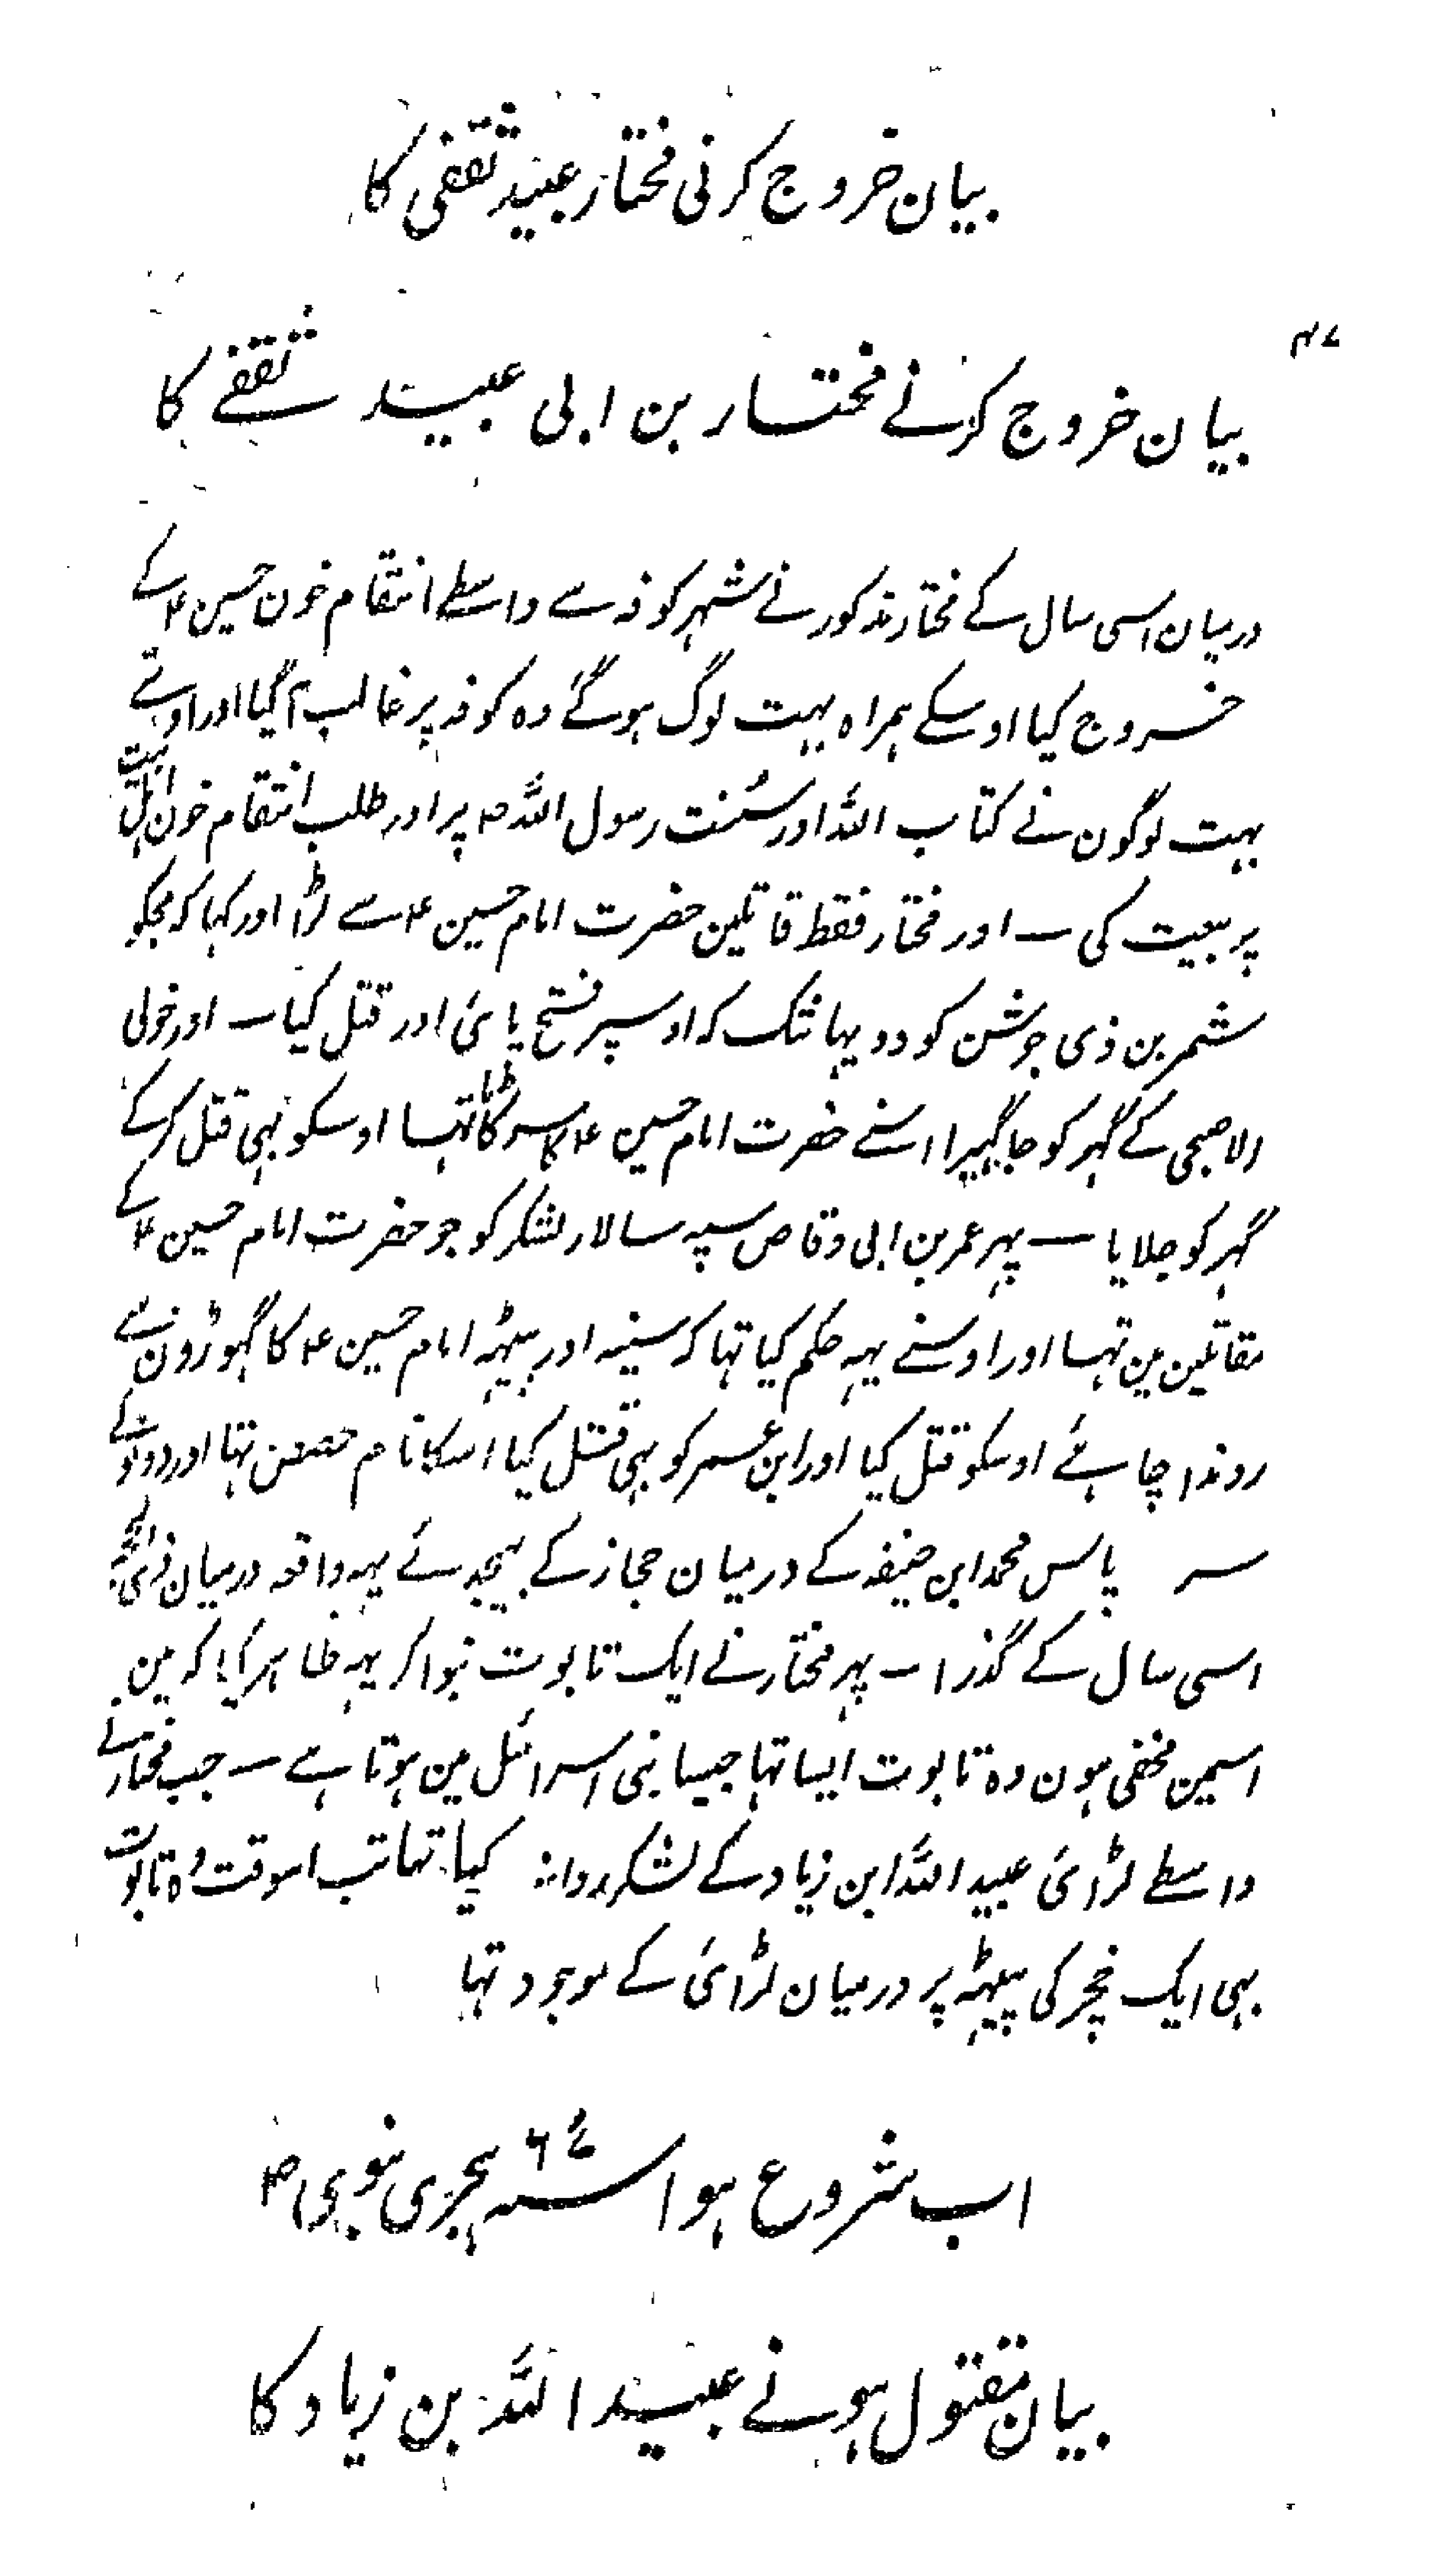 بیان خروج کرنی مختار عبید ثقفی کا
۴۷
بیان خروج کرنے مختار بن ابی عبید ثقفے کا
درمیان اسی سال کے مختار مذکور نے شہر کوفہ سے واسطے انتقام خون حسین ۴ کے
خروج کیا اوسکے ہمراہ بہت لوگ ہوگے وہ کوفہ پر غالب آگیا اور اوسے
بہت لوگون نے کتاب اللہ اور سُنت رسول اللہ ۴ پر اور طلب انتقام خون اہل بیت
پر بیعت کی ۔ اور مختار فقط قاتلین حضرت امام حسین ۴ سے لڑا اور کہا کہ مجکو
شمر بن ذی جوشن کو دو یہانتک کہ اوسپر فتح پائی اور قتل کیا ۔ اور خولی
الاصبحی کے گہر کو جا گہیرا اسنے حضرت امام حسین ۴ کا سر کاٹا تہا اوسکو بہی قتل کرکے
گہر کو جلایا ۔ پہر عمر بن ابی وقاص سپہ سالار لشکر کو جو حضرت امام حسین ۴ کے
مقاتلین مین تہا اور اوسنے یہہ حکم کیا تہا کہ سینہ اور پیٹہہ امام حسین ۴ کا گہوڑون سے
روندا چاہئے اوسکو قتل کیا اور ابن عمر کو بہی قتل کیا اسکا نام حفص تہا اور دونونکے
سر پاس محمد ابن حنیفہ کے درمیان حجاز کے بہیجدئے یہہ واقعہ درمیان ذی الحجہ
اسی سال کے گذرا ۔ پہر مختار نے ایک تابوت بنوا کر یہہ ظاہر کیا کہ مین
اسمین مخفی ہون وہ تابوت ایسا تہا جیسا بنی اسرائیل مین ہوتا ہے ۔ جب مختار نے
واسطے لڑائی عبید اللہ ابن زیاد کے لشکر روانہ کیا تہا تب اسوقت وُہ تابوت
بہی ایک خچر کی پیٹہہ پر درمیان لڑائی کے موجود تہا
اب شروع ہوا سنہ ۶۷ ہجری نبوی ۴
بیان مقتول ہونے عبید اللہ بن زیاد کا